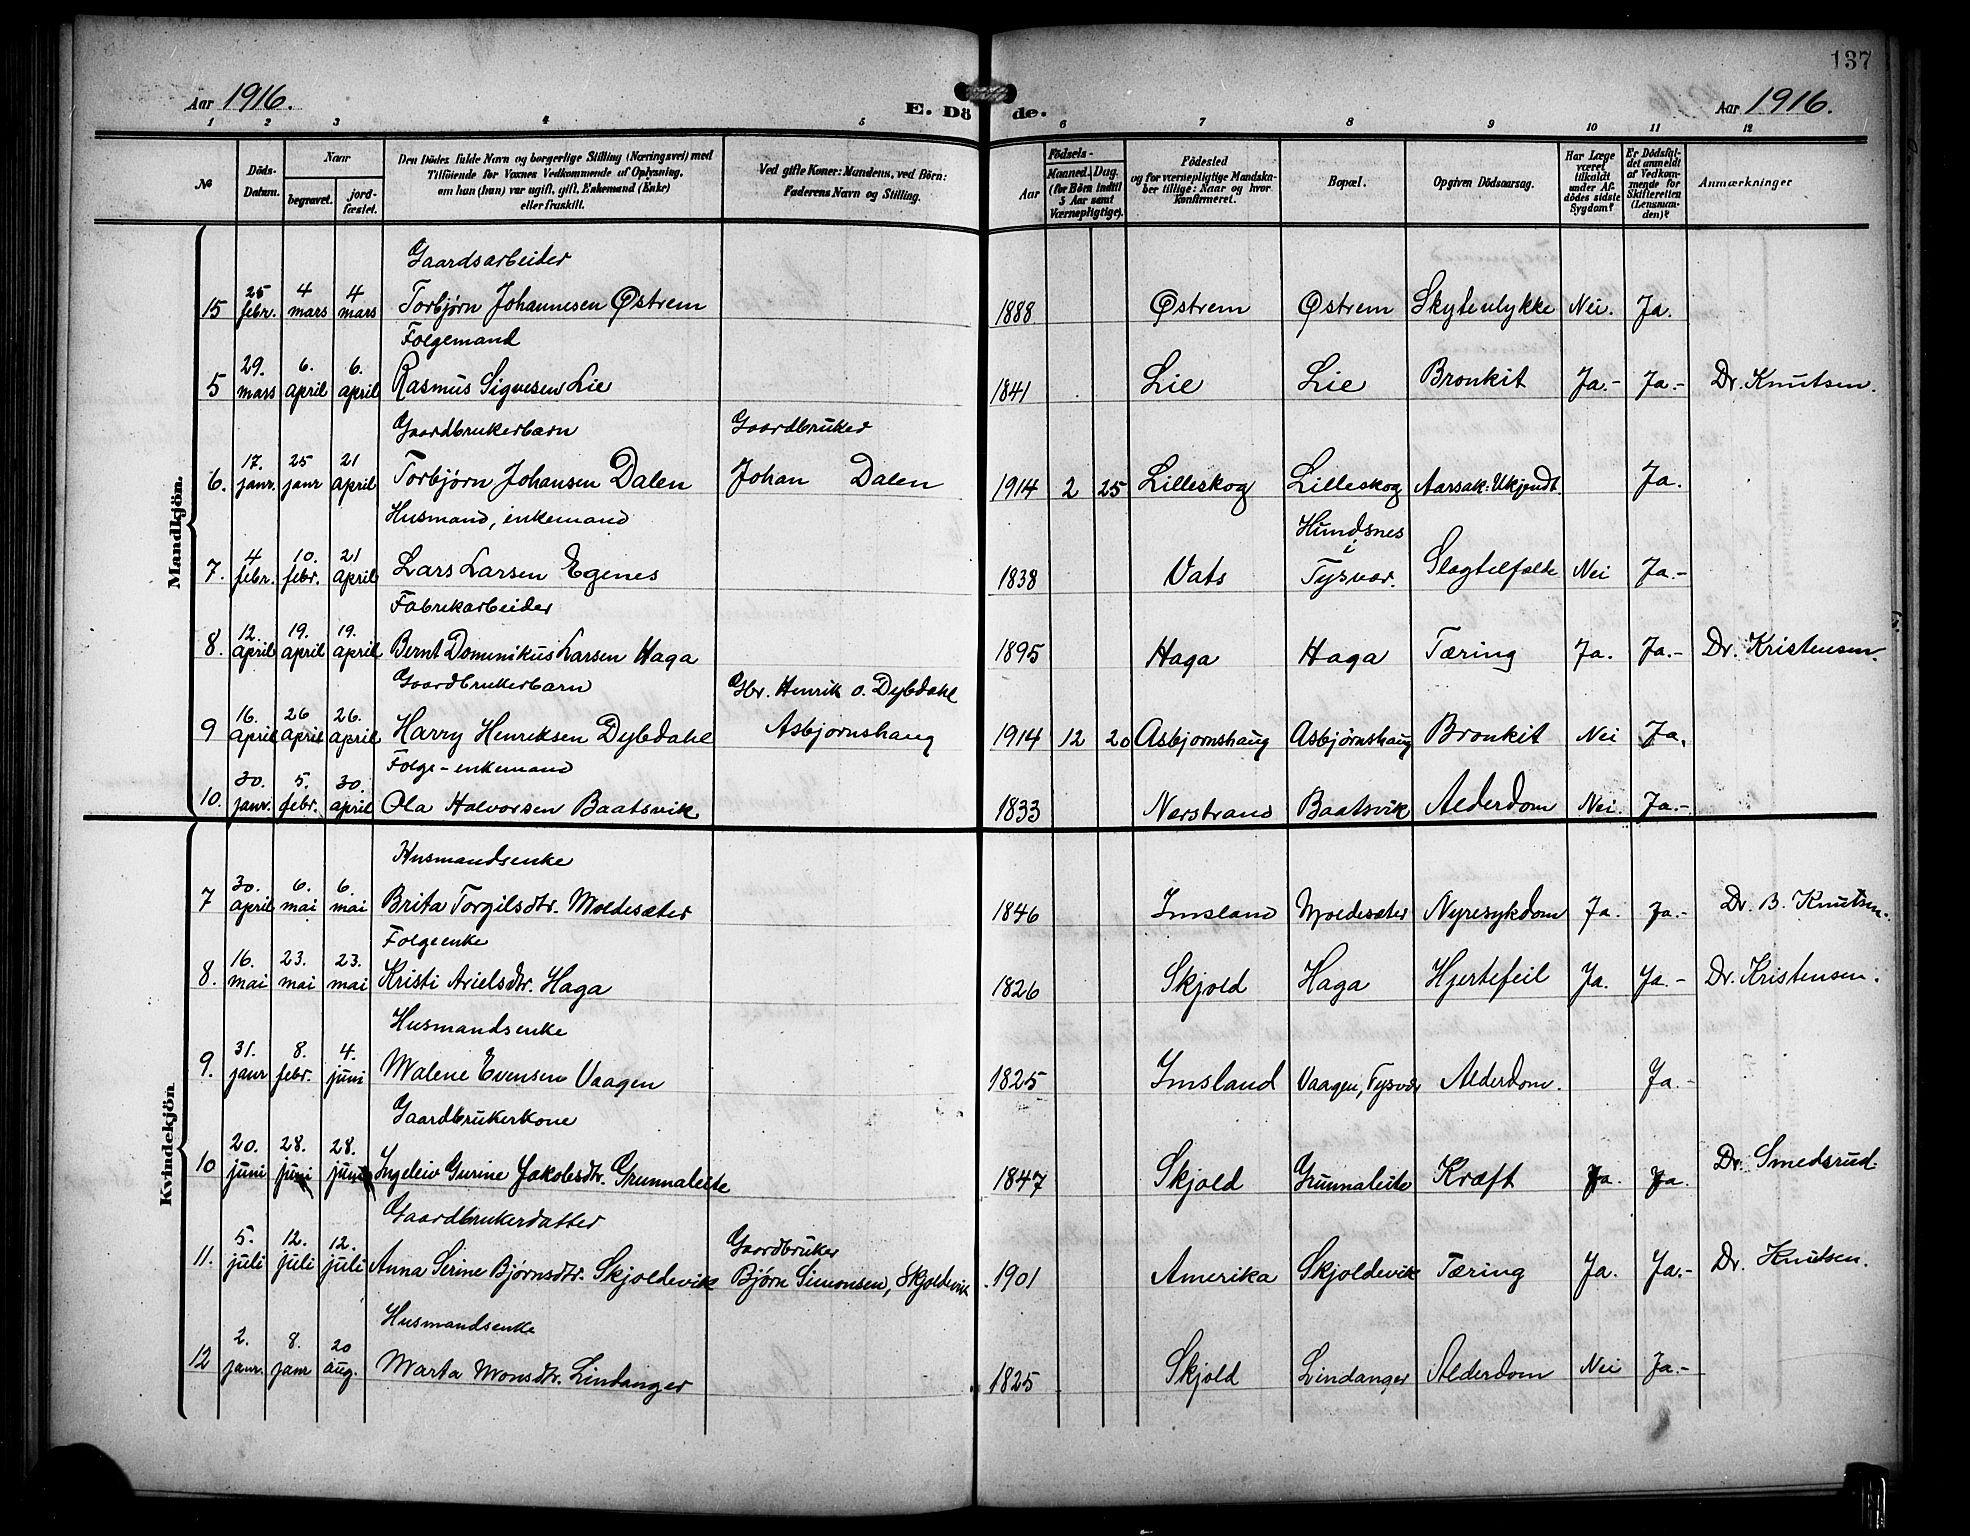 137
Aar 1916.
E. Dö de.
Aar 1916.
1 2 3 4 5 6 7 8 9 10 11 12
№
Döds-Datum.
Naar
begravet.
jord-fæstet.
Den Dödes fulde Navn og borgerlige Stilling (Næringsvei) med
Tilföiende for Voxnes Vedkommende af Oplysning,
om han (hun) var ugift, gift, Enkemand (Enke)
eller fraskilt.
Ved gifte Koner: Mandens, ved Börn:
Faderens Navn og Stilling.
Födsels-
Aar
Maaned. Dag.
(for Börn indtil
5 Aar samt
Værnepligtige).
Födested
og for værnepligtige Mandska-
ber tillige: Naar og hvor
konfirmeret.
Bopæl.
Opgiven Dödsaarsag.
Har Læge
været
tilkaldt
under Af-
dödes sidste
Sygdom?
Er Dödsfal-
det anmeldt
af Vedkom-
mende for
Skifteretten
(Lensman-
den)?
Anmærkninger
Mandkjön.
Gaardsarbeider
15 25 febr. 4 mars 4 mars Torbjørn Johannesen Østrem 1888 Østrem Østrem Skyteulykke Nei. Ja.
Folgemand
5 29. mars 6. april 6. april Rasmus Sigvesen Lie 1841 Lie Lie Bronkit Ja.- Ja.- Dr. Knutsen.
Gaardbrukerbarn Gaardbruker
6. 17. janr. 25 janr 21 april Torbjørn Johansen Dalen Johan Dalen 1914 2 25 Lilleskog Lilleskog Aarsak: Ukjendt. Ja.
Husmand, enkemand Hundsnes
i
7. 4 febr. 10. febr. 21 april Lars Larsen Egenes 1838 Vats Tysvær. Slagtilfælde Nei Ja.-
Fabrikarbeider
8. 12. april 19. april 19. april Bernt Dominikus Larsen Haga 1895 Haga Haga Tæring Ja. Ja.- Dr. Kristensen.
Gaardbrukerbarn Gbr. Henrik O. Dybdahl
9 16. april 26 april 26. april Harry Henriksen Dybdahl Asbjørnshaug 1914 12 20 Asbjørnshaug Asbjørnshaug Bronkit Nei Ja.
Folge-enkemand
10. 30. janr. 5. febr. 30. april Ola Halvorsen Baatsvik 1833 Nerstrand Baatsvik Alderdom Nei. Ja.-
Kvindekjön
Husmandsenke
7 30. april 6. mai 6. mai Brita Torgilsdtr. Moldesæter 1846 Imsland Moldesæter Nyresykdom Ja. Ja.- Dr. B. Knutsen.
Folgeenke
8. 16. mai 23. mai 23. mai Kristi Arielsdtr. Haga 1826 Skjold Haga Hjertefeil Ja. Ja.- Dr. Kristensen.
Husmandsenke
9. 31. janr 8. febr. 4. juni Malene Evensen Vaagen 1825 Imsland Vaagen, Tysvær Alderdom. Ja.-
Gaardbrukerkone
10 20. juni 28. juni 28. juni Ingeleiv Gurine Jakobsdtr. Grunnaleite 1847 Skjold Grunnaleite Kræft Ja. Ja. Dr. Smedsrud.
Gaardbrukerdatter Gaardbruker
11. 5. juli 12. juli 12. juli Anna Serine Bjørnsdtr. Skjoldevik Bjørn Simonsen, Skjoldevik 1901 Amerika Skjoldevik Tæring Ja. Ja.- Dr. Knutsen.
Husmandsenke
12 2. janr. 8. janr 20 aug. Marta Monsdtr. Lindanger 1825 Skjold Lindanger Alderdom Nei Ja.-